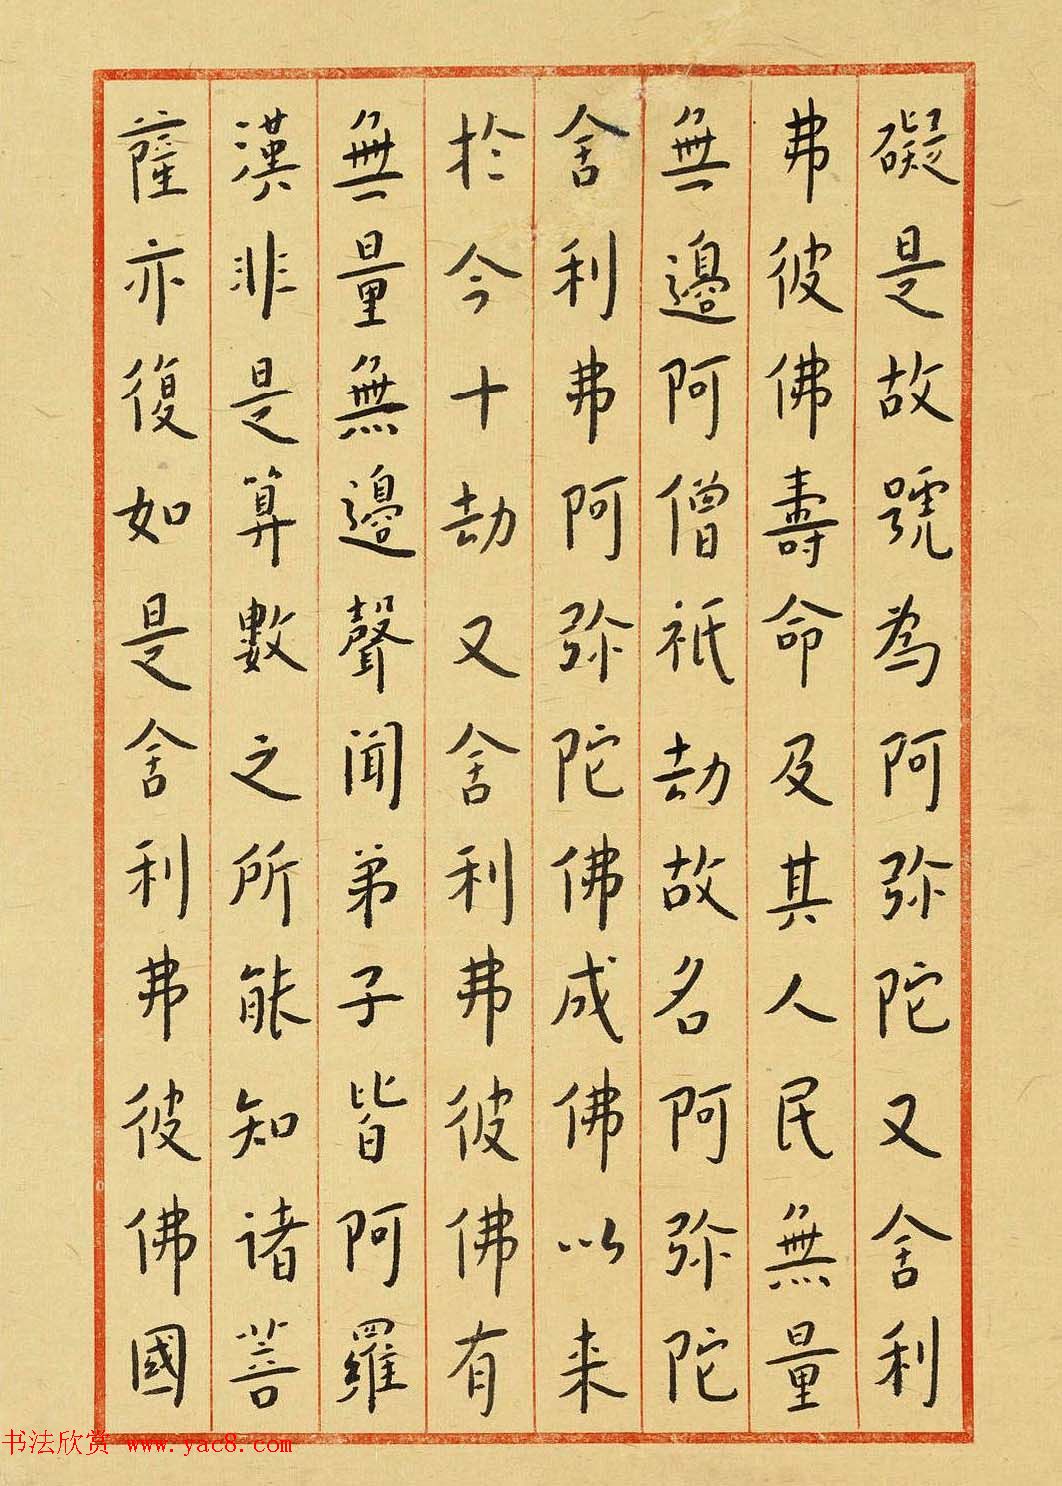 礙是故號為阿弥陀又舍利
弗彼佛壽命及其人民無量
無邊阿僧祇劫故名阿弥陀
舍利弗阿弥陀佛成佛以来
於今十劫又舍利弗彼佛有
無量無邊聲聞弟子皆阿羅
漢非是算數之所能知诸菩
薩亦復如是舍利弗彼佛國
书法欣赏 www.yac8.com